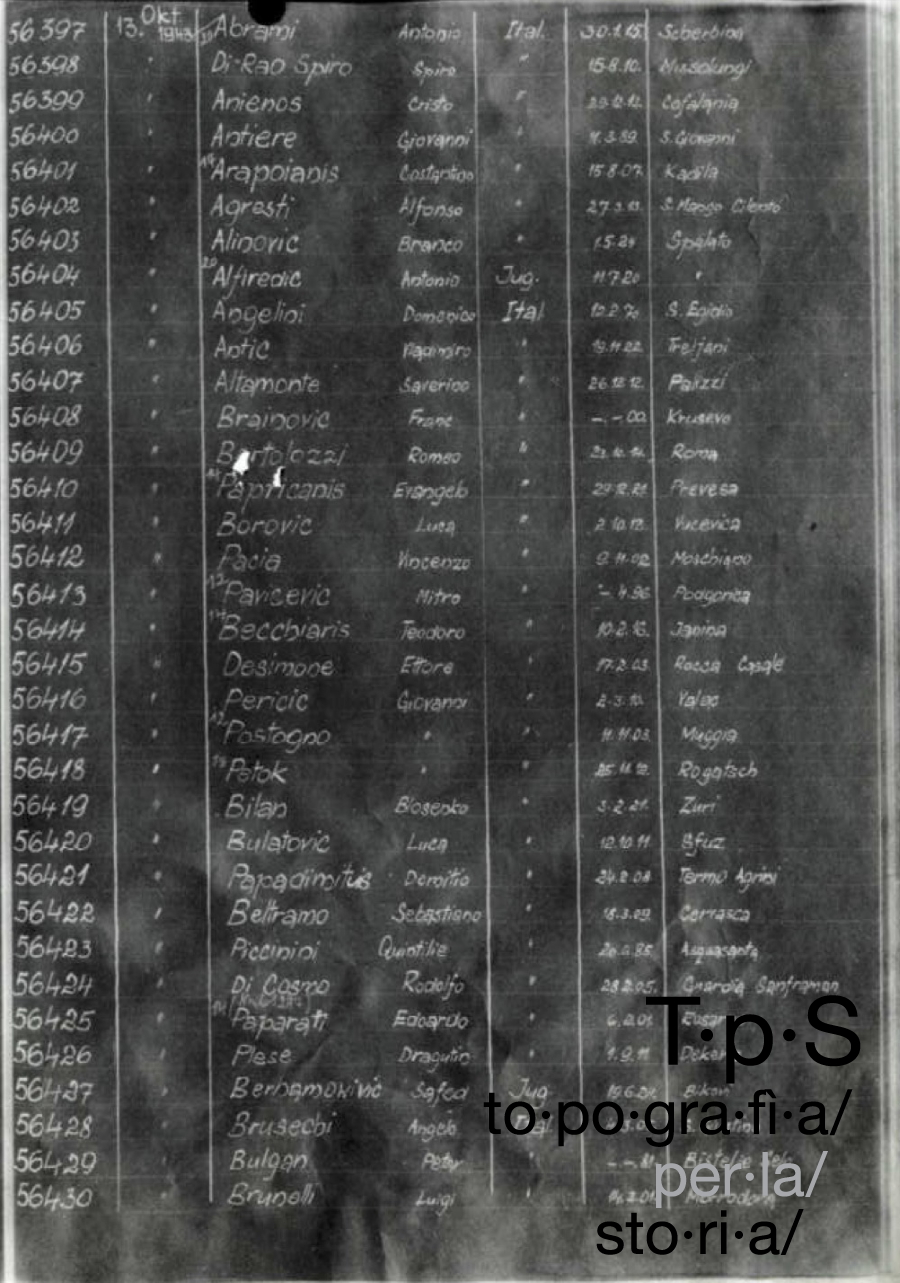 56397 13. Okt. 1943 Abrami Antonio Ital. 30.1.15. Scherbina
56398 " Di-Rao Spiro Spiro " 15.8.10. Missolungi
56399 " Anienos Cristo " Cefalania
56400 " Antiere Giovanni " S. Giovanni
56401 " Arapoianis Costantino " 15.8.07. Kadila
56402 " Agresti Alfonso " S. Mango Cilento
56403 " Alinovic Branco " Spalato
56404 " Alfiredic Antonio Jug. 11.7.20 "
56405 " Angelini Domenico Ital. S. Egidio
56406 " Antic Vladimiro " 19.11.22. Treljani
56407 " Altamonte Saverino " 26.12.12. Palizzi
56408 " Brainovic Franc " -.-.00. Krusevo
56409 " Bartolozzi Romeo " Roma
56410 " Papricanis Evangelo " 29.12.21. Prevesa
56411 " Borovic Luca " 2.10.12. Vucevica
56412 " Pacia Vincenzo " 9.11.02. Moschiano
56413 " 12 Pavicevic Mitro " - 4.96 Podgorica
56414 " 14 Becchiaris Teodoro " 10.2.16. Janina
56415 " Desimone Ettore " 17.2.03. Rocca Casale
56416 " Pericic Giovanni " 2.3.10.
56417 " 12 Postogno " " 11.11.03. Muggia
56418 " 13 Petok " " Rogatsch
56419 " Bilan Biosenko " 3.2.21. Zuri
56420 " Bulatovic Luca " 12.10.11
56421 " Papadimitus Demitio " 24.2.08 Termo Agrini
56422 " Beltramo Sebastiano " 18.3.09. Cerrasca
56423 " Piccinini Quintilie " Aquasanta
56424 " Di Cosmo Rodolfo " 28.2.05. Guardia Sanframon
56425 " Paparati Edoardo " 6.2.01
56426 " Plese Dragutin " 1.9.11 Dekar
56427 " Berbamovivic Safed Jug. 19.6.21.
56428 " Brusechi Angelo Ital.
56429 " Bulgan Peter "
56430 " Brunelli Luigi "
T·p·S
to·po·gra·fì·a/
per·la/
sto·ri·a/